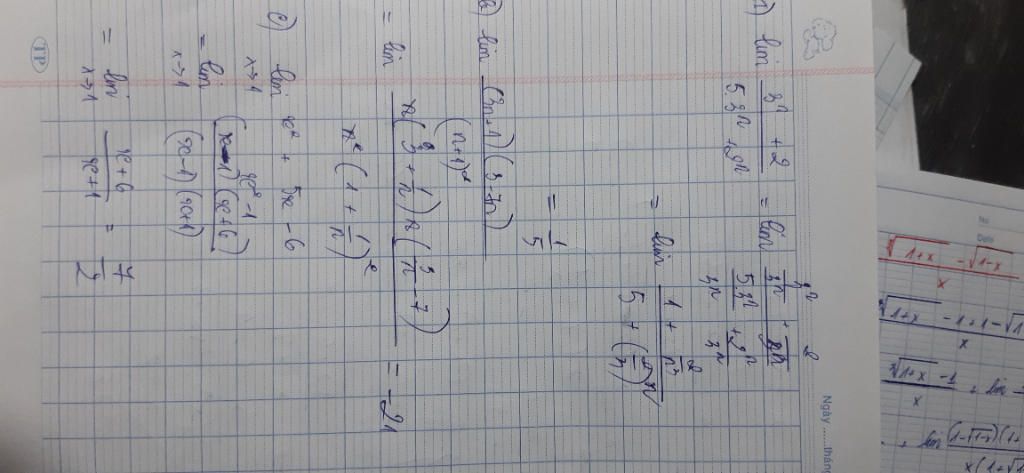 Ngày ..... thán
1) lim \frac{3^n + 2}{5.3^n + 2^n} = lim \frac{\frac{3^n}{3^n} + \frac{2}{3^n}}{\frac{5.3^n}{3^n} + \frac{2^n}{3^n}}
= lim \frac{1 + \frac{2}{3^n}}{5 + (\frac{2}{3})^n}
= \frac{1}{5}
lim \frac{(3n+1)(3-7n)}{(n+1)^2}
= lim \frac{n(3 + \frac{1}{n}) n(\frac{3}{n} - 7)}{n^2 (1 + \frac{1}{n})^2} = -21
c) lim x→1 \frac{x^2 + 5x - 6}{x^2 - 1}
= lim x→1 \frac{(x-1)(x+6)}{(x-1)(x+1)}
= lim x→1 \frac{x+6}{x+1} = \frac{7}{2}
TP
No
Date
\frac{\sqrt[3]{1+x} - \sqrt{1-x}}{x}
\sqrt[3]{1+x} - 1 + 1 - \sqrt{1
x
\frac{\sqrt[3]{1+x} - 1}{x} + lim
+ lim \frac{(1-\sqrt{1-x})(1+}{x(1+\sqrt{}}